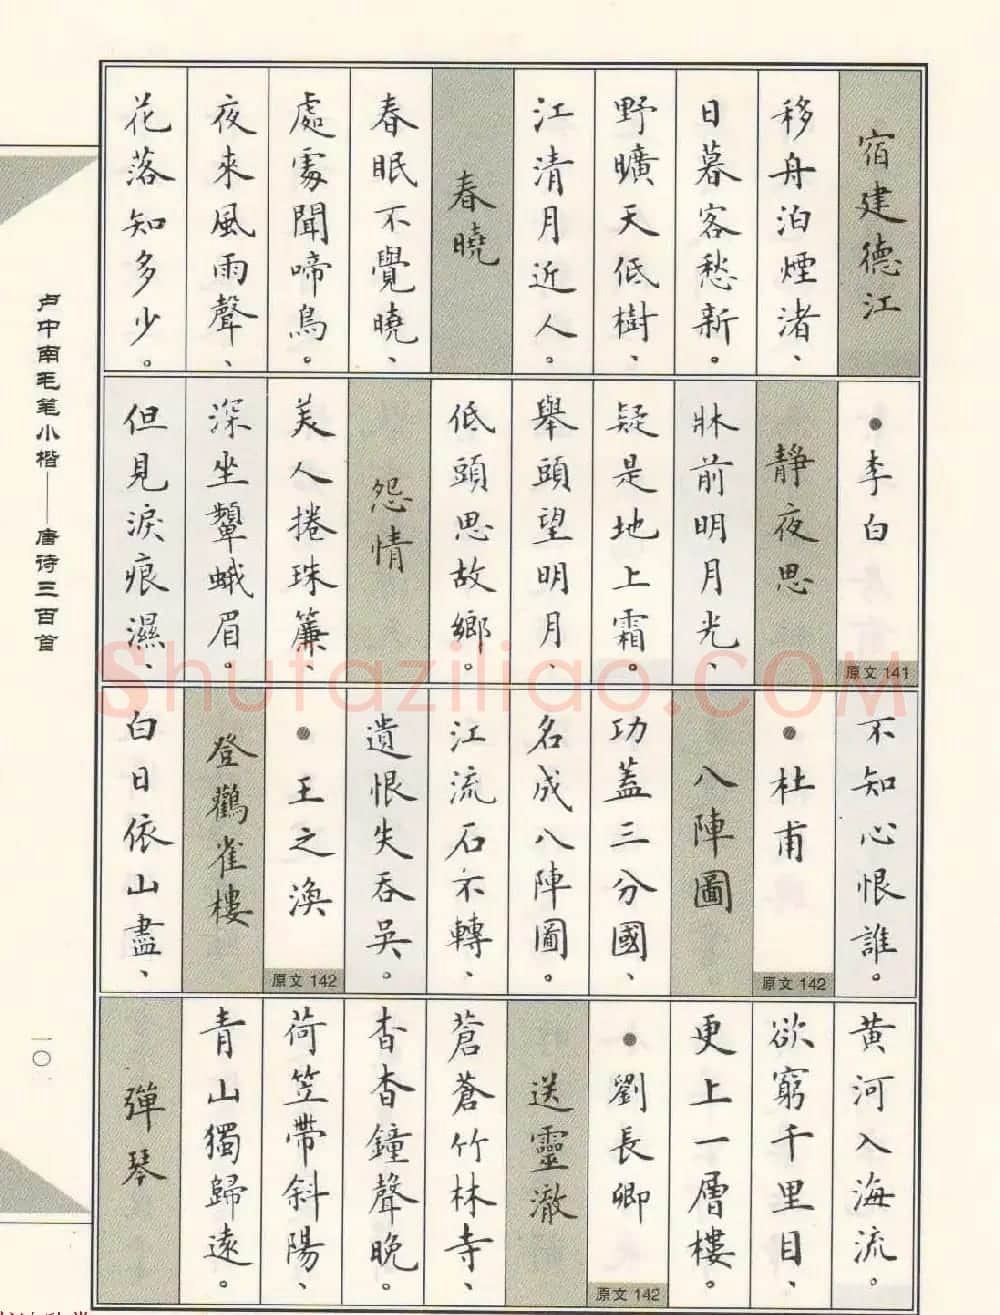 宿建德江
移舟泊煙渚、
日暮客愁新。
野曠天低樹、
江清月近人。
春曉
春眠不覺曉、
處處聞啼鳥。
夜來風雨聲、
花落知多少。
●李白
原文 141
靜夜思
牀前明月光、
疑是地上霜。
舉頭望明月、
低頭思故鄉。
怨情
美人捲珠簾、
深坐顰蛾眉。
但見淚痕濕、
不知心恨誰。
●杜甫
原文 142
八陣圖
功蓋三分國、
名成八陣圖。
江流石不轉、
遺恨失吞吳。
●王之渙
原文 142
登鸛雀樓
白日依山盡、
黃河入海流。
欲窮千里目、
更上一層樓。
●劉長卿
原文 142
送靈澈
蒼蒼竹林寺、
杳杳鐘聲晚。
荷笠帶斜陽、
青山獨歸遠。
彈琴
卢中南毛笔小楷——唐诗三百首
一〇
Shufaziliao.COM